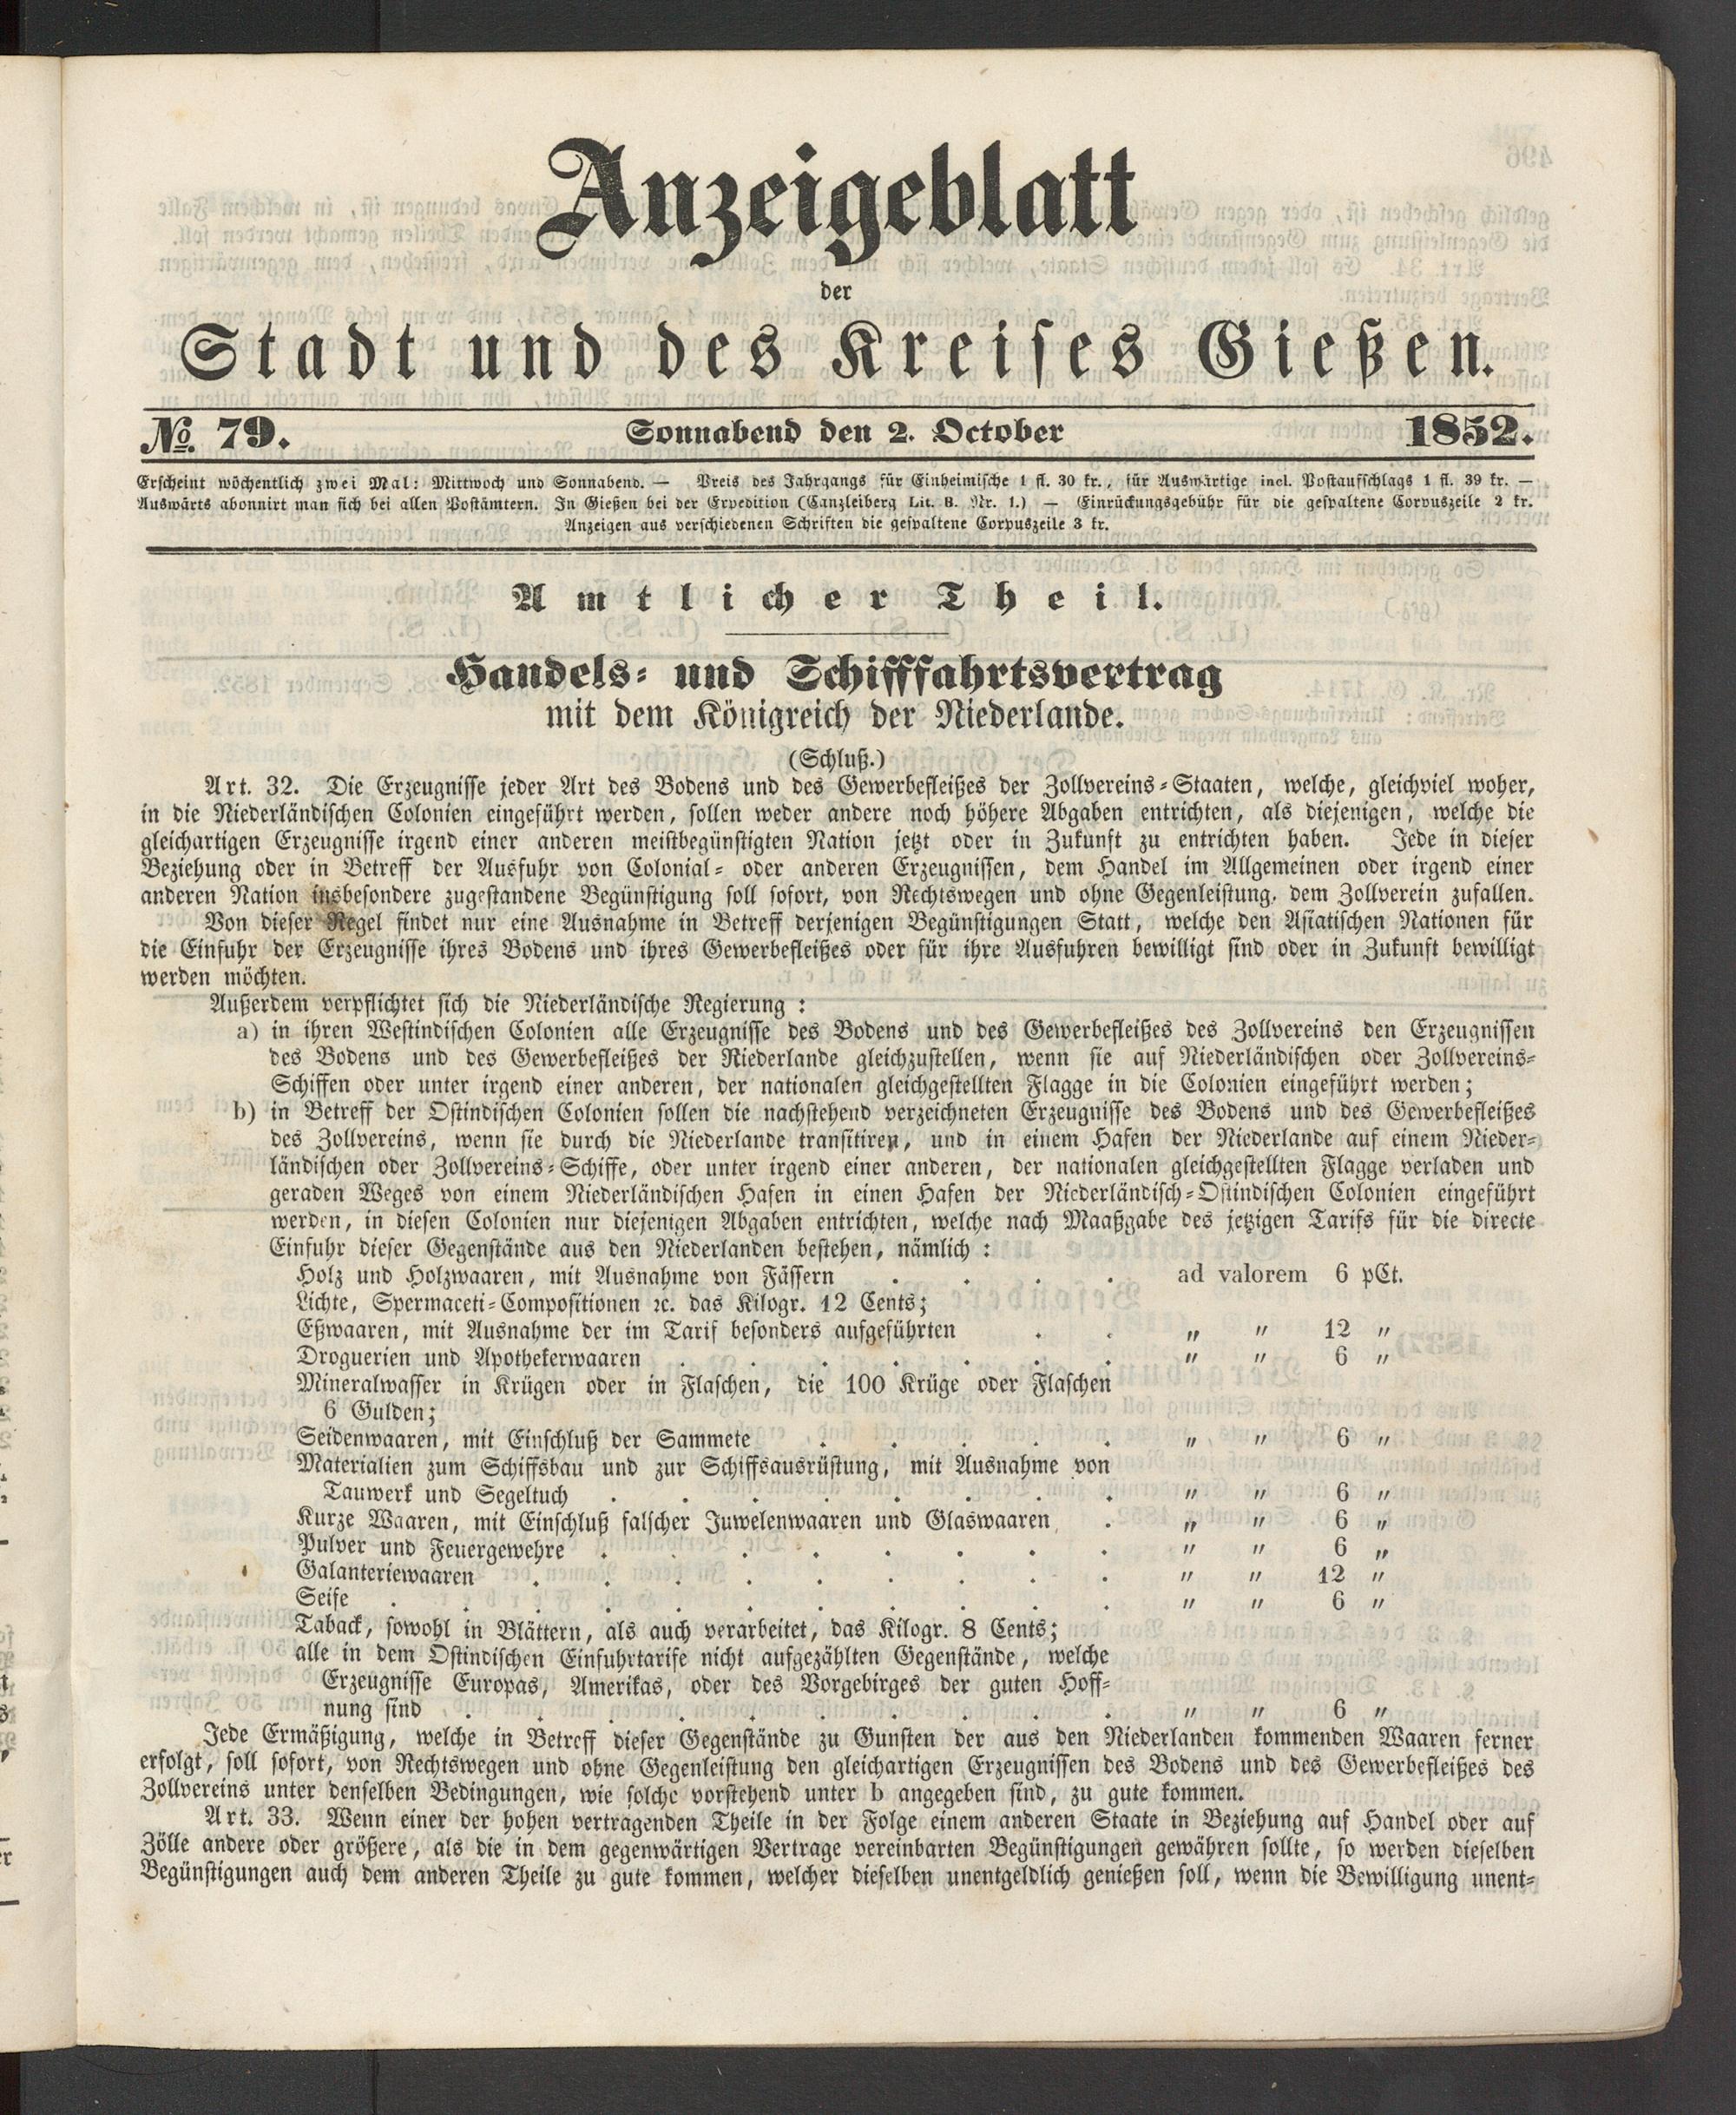 Anzeigeblatt
der
Stadt und des Kreises Gießen.
No. 79. Sonnabend den 2. October 1852.
Erscheint wöchentlich zwei Mal: Mittwoch und Sonnabend. — Preis des Jahrgangs für Einheimische 1 fl. 30 kr., für Auswärtige incl. Postaufschlags 1 fl. 39 kr. —
Auswärts abonnirt man sich bei allen Postämtern. In Gießen bei der Expedition (Canzleiberg Lit. B. Nr. 1.) — Einrückungsgebühr für die gespaltene Corpuszeile 2 kr.
Anzeigen aus verschiedenen Schriften die gespaltene Corpuszeile 3 kr.
Amtlicher Theil.
Handels- und Schifffahrtsvertrag
mit dem Königreich der Niederlande.
(Schluß.)
Art. 32. Die Erzeugnisse jeder Art des Bodens und des Gewerbefleißes der Zollvereins-Staaten, welche, gleichviel woher,
in die Niederländischen Colonien eingeführt werden, sollen weder andere noch höhere Abgaben entrichten, als diejenigen, welche die
gleichartigen Erzeugnisse irgend einer anderen meistbegünstigten Nation jetzt oder in Zukunft zu entrichten haben. Jede in dieser
Beziehung oder in Betreff der Ausfuhr von Colonial- oder anderen Erzeugnissen, dem Handel im Allgemeinen oder irgend einer
anderen Nation insbesondere zugestandene Begünstigung soll sofort, von Rechtswegen und ohne Gegenleistung, dem Zollverein zufallen.
Von dieser Regel findet nur eine Ausnahme in Betreff derjenigen Begünstigungen Statt, welche den Asiatischen Nationen für
die Einfuhr der Erzeugnisse ihres Bodens und ihres Gewerbefleißes oder für ihre Ausfuhren bewilligt sind oder in Zukunft bewilligt
werden möchten.
Außerdem verpflichtet sich die Niederländische Regierung :
a) in ihren Westindischen Colonien alle Erzeugnisse des Bodens und des Gewerbefleißes des Zollvereins den Erzeugnissen
des Bodens und des Gewerbefleißes der Niederlande gleichzustellen, wenn sie auf Niederländischen oder Zollvereins-
Schiffen oder unter irgend einer anderen, der nationalen gleichgestellten Flagge in die Colonien eingeführt werden;
b) in Betreff der Ostindischen Colonien sollen die nachstehend verzeichneten Erzeugnisse des Bodens und des Gewerbefleißes
des Zollvereins, wenn sie durch die Niederlande transitiren, und in einem Hafen der Niederlande auf einem Nieder-
ländischen oder Zollvereins-Schiffe, oder unter irgend einer anderen, der nationalen gleichgestellten Flagge verladen und
geraden Weges von einem Niederländischen Hafen in einen Hafen der Niederländisch-Ostindischen Colonien eingeführt
werden, in diesen Colonien nur diejenigen Abgaben entrichten, welche nach Maaßgabe des jetzigen Tarifs für die directe
Einfuhr dieser Gegenstände aus den Niederlanden bestehen, nämlich :
Holz und Holzwaaren, mit Ausnahme von Fässern . . . . ad valorem 6 pCt.
Lichte, Spermaceti-Compositionen ꝛc. das Kilogr. 12 Cents;
Eßwaaren, mit Ausnahme der im Tarif besonders aufgeführten . . „ „ 12 „
Droguerien und Apothekerwaaren . . . . . . . „ „ 6 „
Mineralwasser in Krügen oder in Flaschen, die 100 Krüge oder Flaschen
6 Gulden;
Seidenwaaren, mit Einschluß der Sammete . . . . . „ „ 6 „
Materialien zum Schiffsbau und zur Schiffsausrüstung, mit Ausnahme von
Tauwerk und Segeltuch . . . . . . . . „ „ 6 „
Kurze Waaren, mit Einschluß falscher Juwelenwaaren und Glaswaaren . „ „ 6 „
Pulver und Feuergewehre . . . . . . . . „ „ 6 „
Galanteriewaaren . . . . . . . . . „ „ 12 „
Seife . . . . . . . . . . . „ „ 6 „
Taback, sowohl in Blättern, als auch verarbeitet, das Kilogr. 8 Cents;
alle in dem Ostindischen Einfuhrtarife nicht aufgezählten Gegenstände, welche
Erzeugnisse Europas, Amerikas, oder des Vorgebirges der guten Hoff-
nung sind . . . . . . . . . . „ „ 6 „
Jede Ermäßigung, welche in Betreff dieser Gegenstände zu Gunsten der aus den Niederlanden kommenden Waaren ferner
erfolgt, soll sofort, von Rechtswegen und ohne Gegenleistung den gleichartigen Erzeugnissen des Bodens und des Gewerbefleißes des
Zollvereins unter denselben Bedingungen, wie solche vorstehend unter b angegeben sind, zu gute kommen.
Art. 33. Wenn einer der hohen vertragenden Theile in der Folge einem anderen Staate in Beziehung auf Handel oder auf
Zölle andere oder größere, als die in dem gegenwärtigen Vertrage vereinbarten Begünstigungen gewähren sollte, so werden dieselben
Begünstigungen auch dem anderen Theile zu gute kommen, welcher dieselben unentgeldlich genießen soll, wenn die Bewilligung unent-